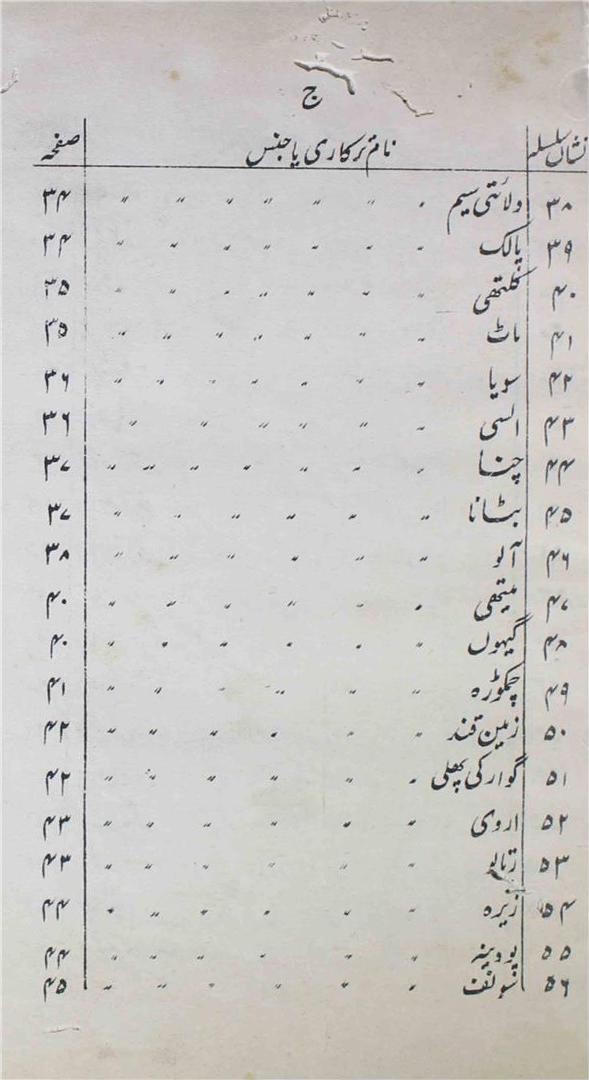 ج
نشان سلسلہ نام ترکاری یا جنس صفحہ
۳۸ ولائتی سیم ۳۴
۳۹ پالک ۳۴
۴۰ کلتھی ۳۵
۴۱ ماٹ ۳۵
۴۲ سویا ۳۶
۴۳ السی ۳۶
۴۴ چنا ۳۷
۴۵ بٹانا ۳۷
۴۶ آلو ۳۸
۴۷ میتھی ۴۰
۴۸ گیہوں ۴۰
۴۹ چکوڑہ ۴۱
۵۰ زمین قند ۴۲
۵۱ گوار کی پھلی ۴۲
۵۲ اروی ۴۳
۵۳ رتالو ۴۳
۵۴ زیرہ ۴۴
۵۵ پودینہ ۴۴
۵۶ سونف ۴۵